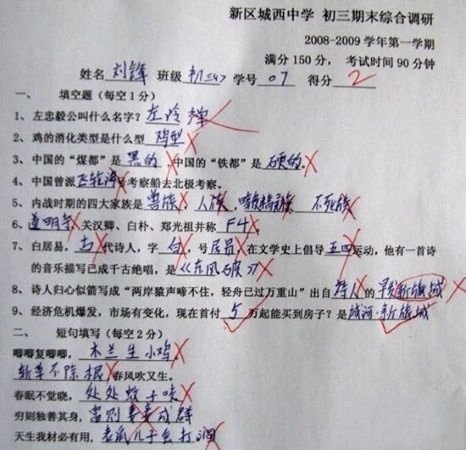 新区城西中学 初三期末综合调研
2008-2009 学年第一学期
满分 150 分，考试时间 90 分钟
姓名 刘锋 班级 初三<4> 学号 07 得分 2
一、 填空题（每空 1 分）
1、左忠毅公叫什么名字？左冷禅
2、鸡的消化类型是什么型 鸡型
3、中国的“煤都”是 黑的，中国的“铁都”是 硬的。
4、中国曾派 飞轮海 号考察船去北极考察。
5、内战时期的四大家族是 兽族 人族、暗夜精灵族 不死族
6、道明寺、关汉卿、白朴、郑光祖并称 F4。
7、白居易，古 代诗人，字 白，号 居易 在文学史上倡导 五四 运动，他有一首诗
的音乐描写已成千古绝唱，是《东风破》
8、诗人归心似箭写成“两岸猿声啼不住，轻舟已过万重山”出自 诗人 的 新城
9、经济危机爆发，市场有变化，现在首付 5 万起能买到房子？是 新城
二、 短句填写（每空 2 分）
唧唧复唧唧， 木兰生小鸡
斩草不除根 春风吹又生。
春眠不觉晓， 处处蚊子咬
穷则独善其身， 富则妻妾成群
天生我材必有用， 老鼠儿子会打洞